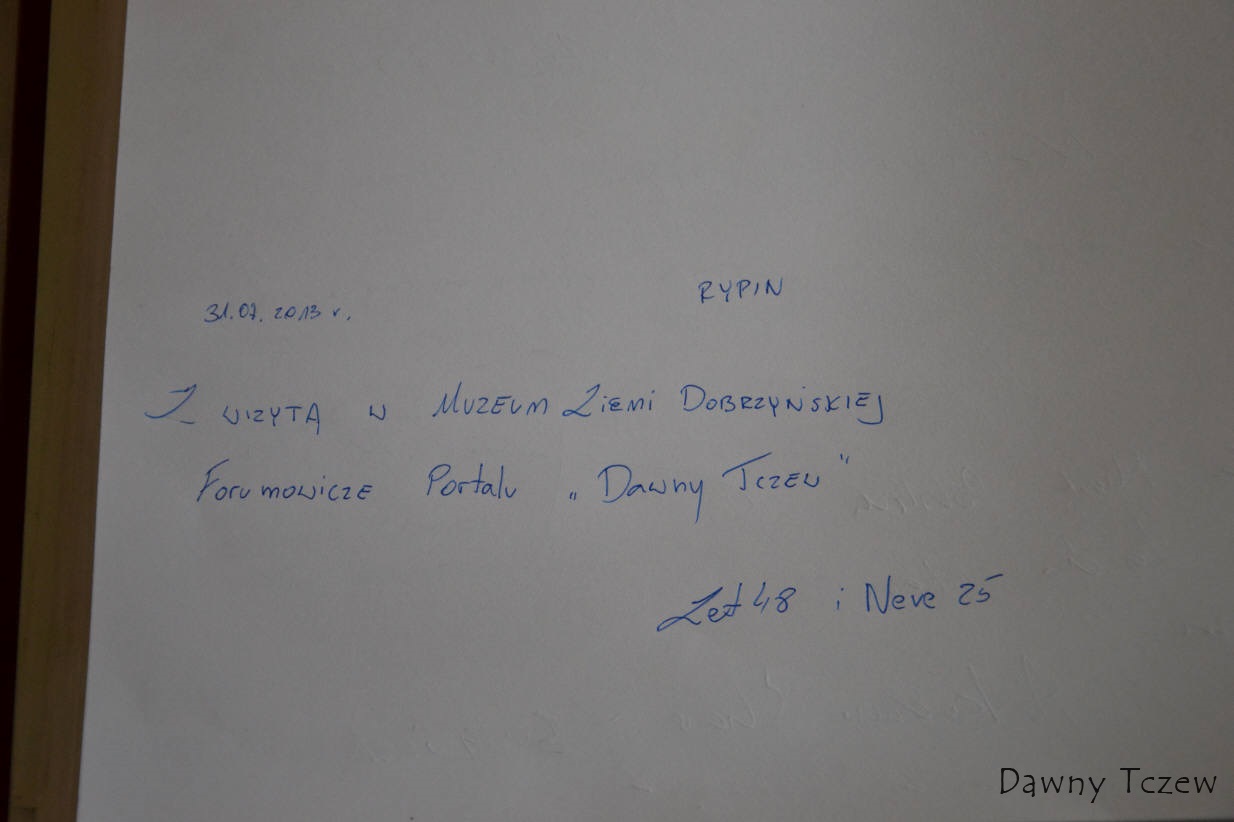 31.07.2013 r. RYPIN
Z WIZYTĄ W MUZEUM ZIEMI DOBRZYŃSKIEJ
Forumowicze Portalu „Dawny Tczew”
Zet48 i Neve 25
Dawny Tczew